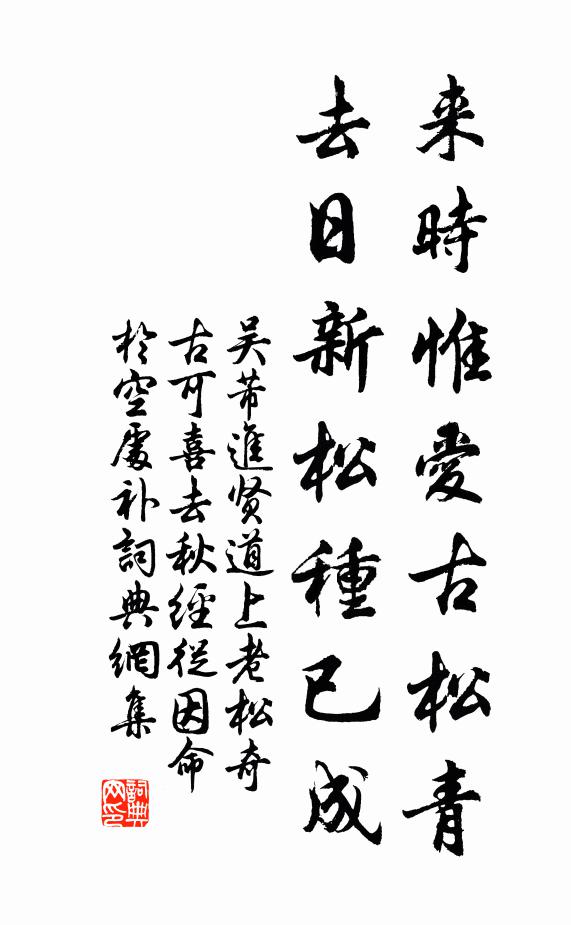 来時惟愛古松青
去日新松種已成
吴芾進贤道上老松奇
古可喜去秋經從因命
於空處补詞典網集
詞典网印